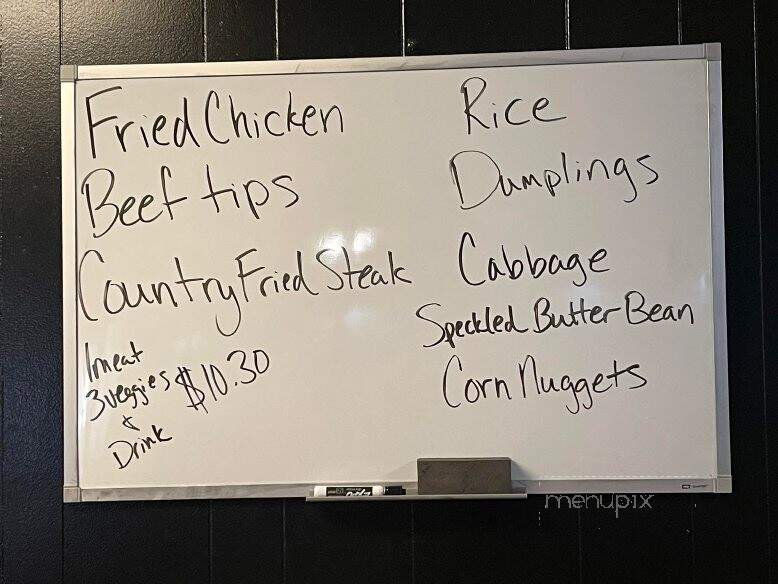 Fried Chicken
Beef tips
Country Fried Steak
1 meat
3 veggies
&
Drink
$10.30
Rice
Dumplings
Cabbage
Speckled Butter Bean
Corn Nuggets
EXPO
menupix